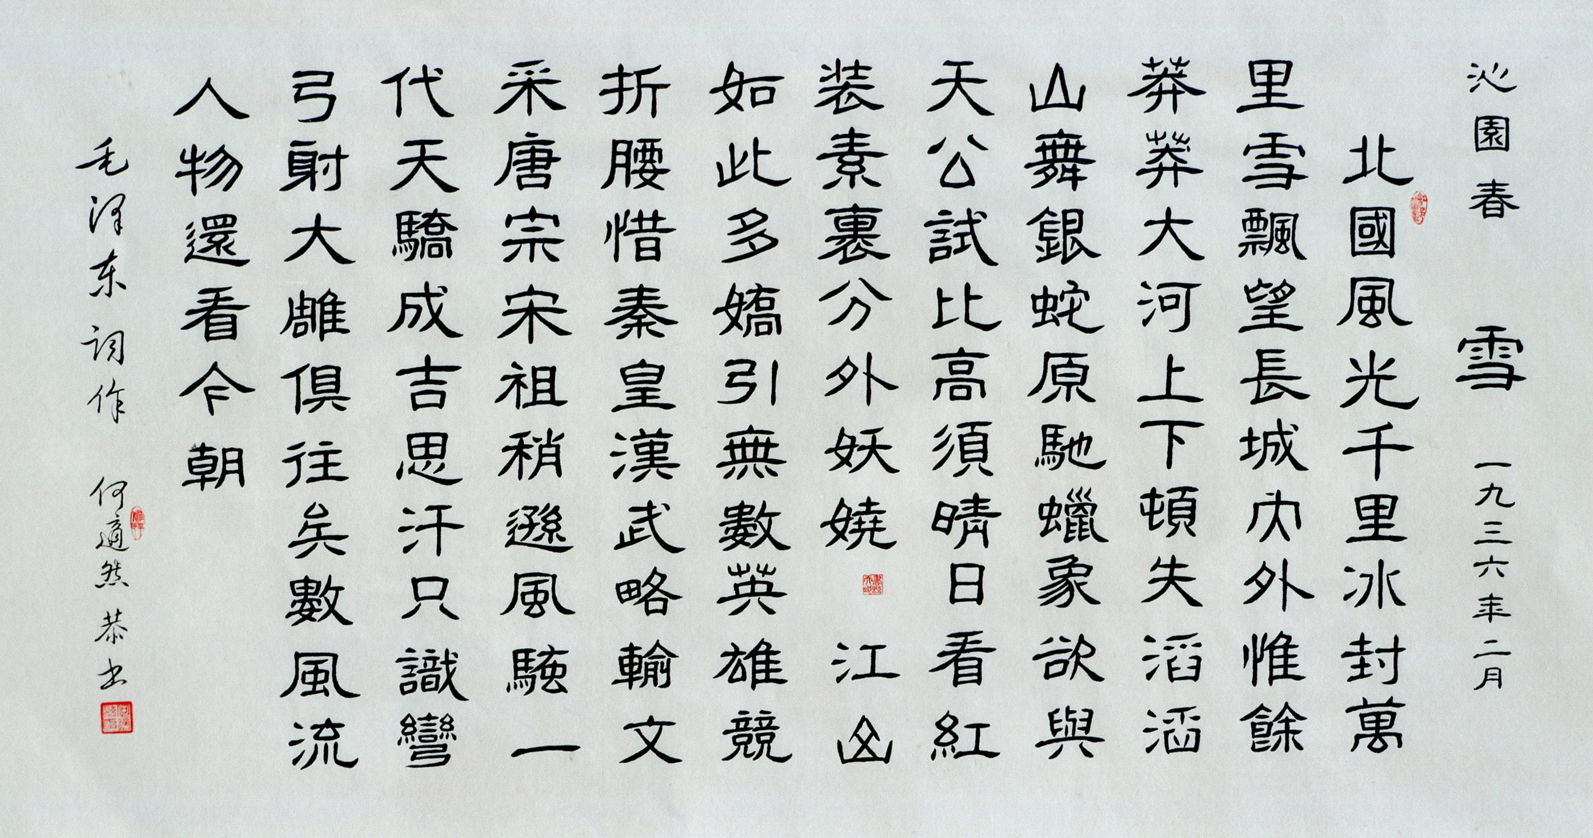 沁園春 雪 一九三六年二月
北國風光千里冰封萬
里雪飄望長城内外惟餘
莽莽大河上下頓失滔滔
山舞銀蛇原馳蠟象欲與
天公試比高須晴日看紅
装素裹分外妖嬈 江山
如此多嬌引無數英雄競
折腰惜秦皇漢武略輸文
采唐宗宋祖稍遜風騷一
代天驕成吉思汗只識彎
弓射大雕俱往矣數風流
人物還看今朝
毛泽东词作 何適然恭书